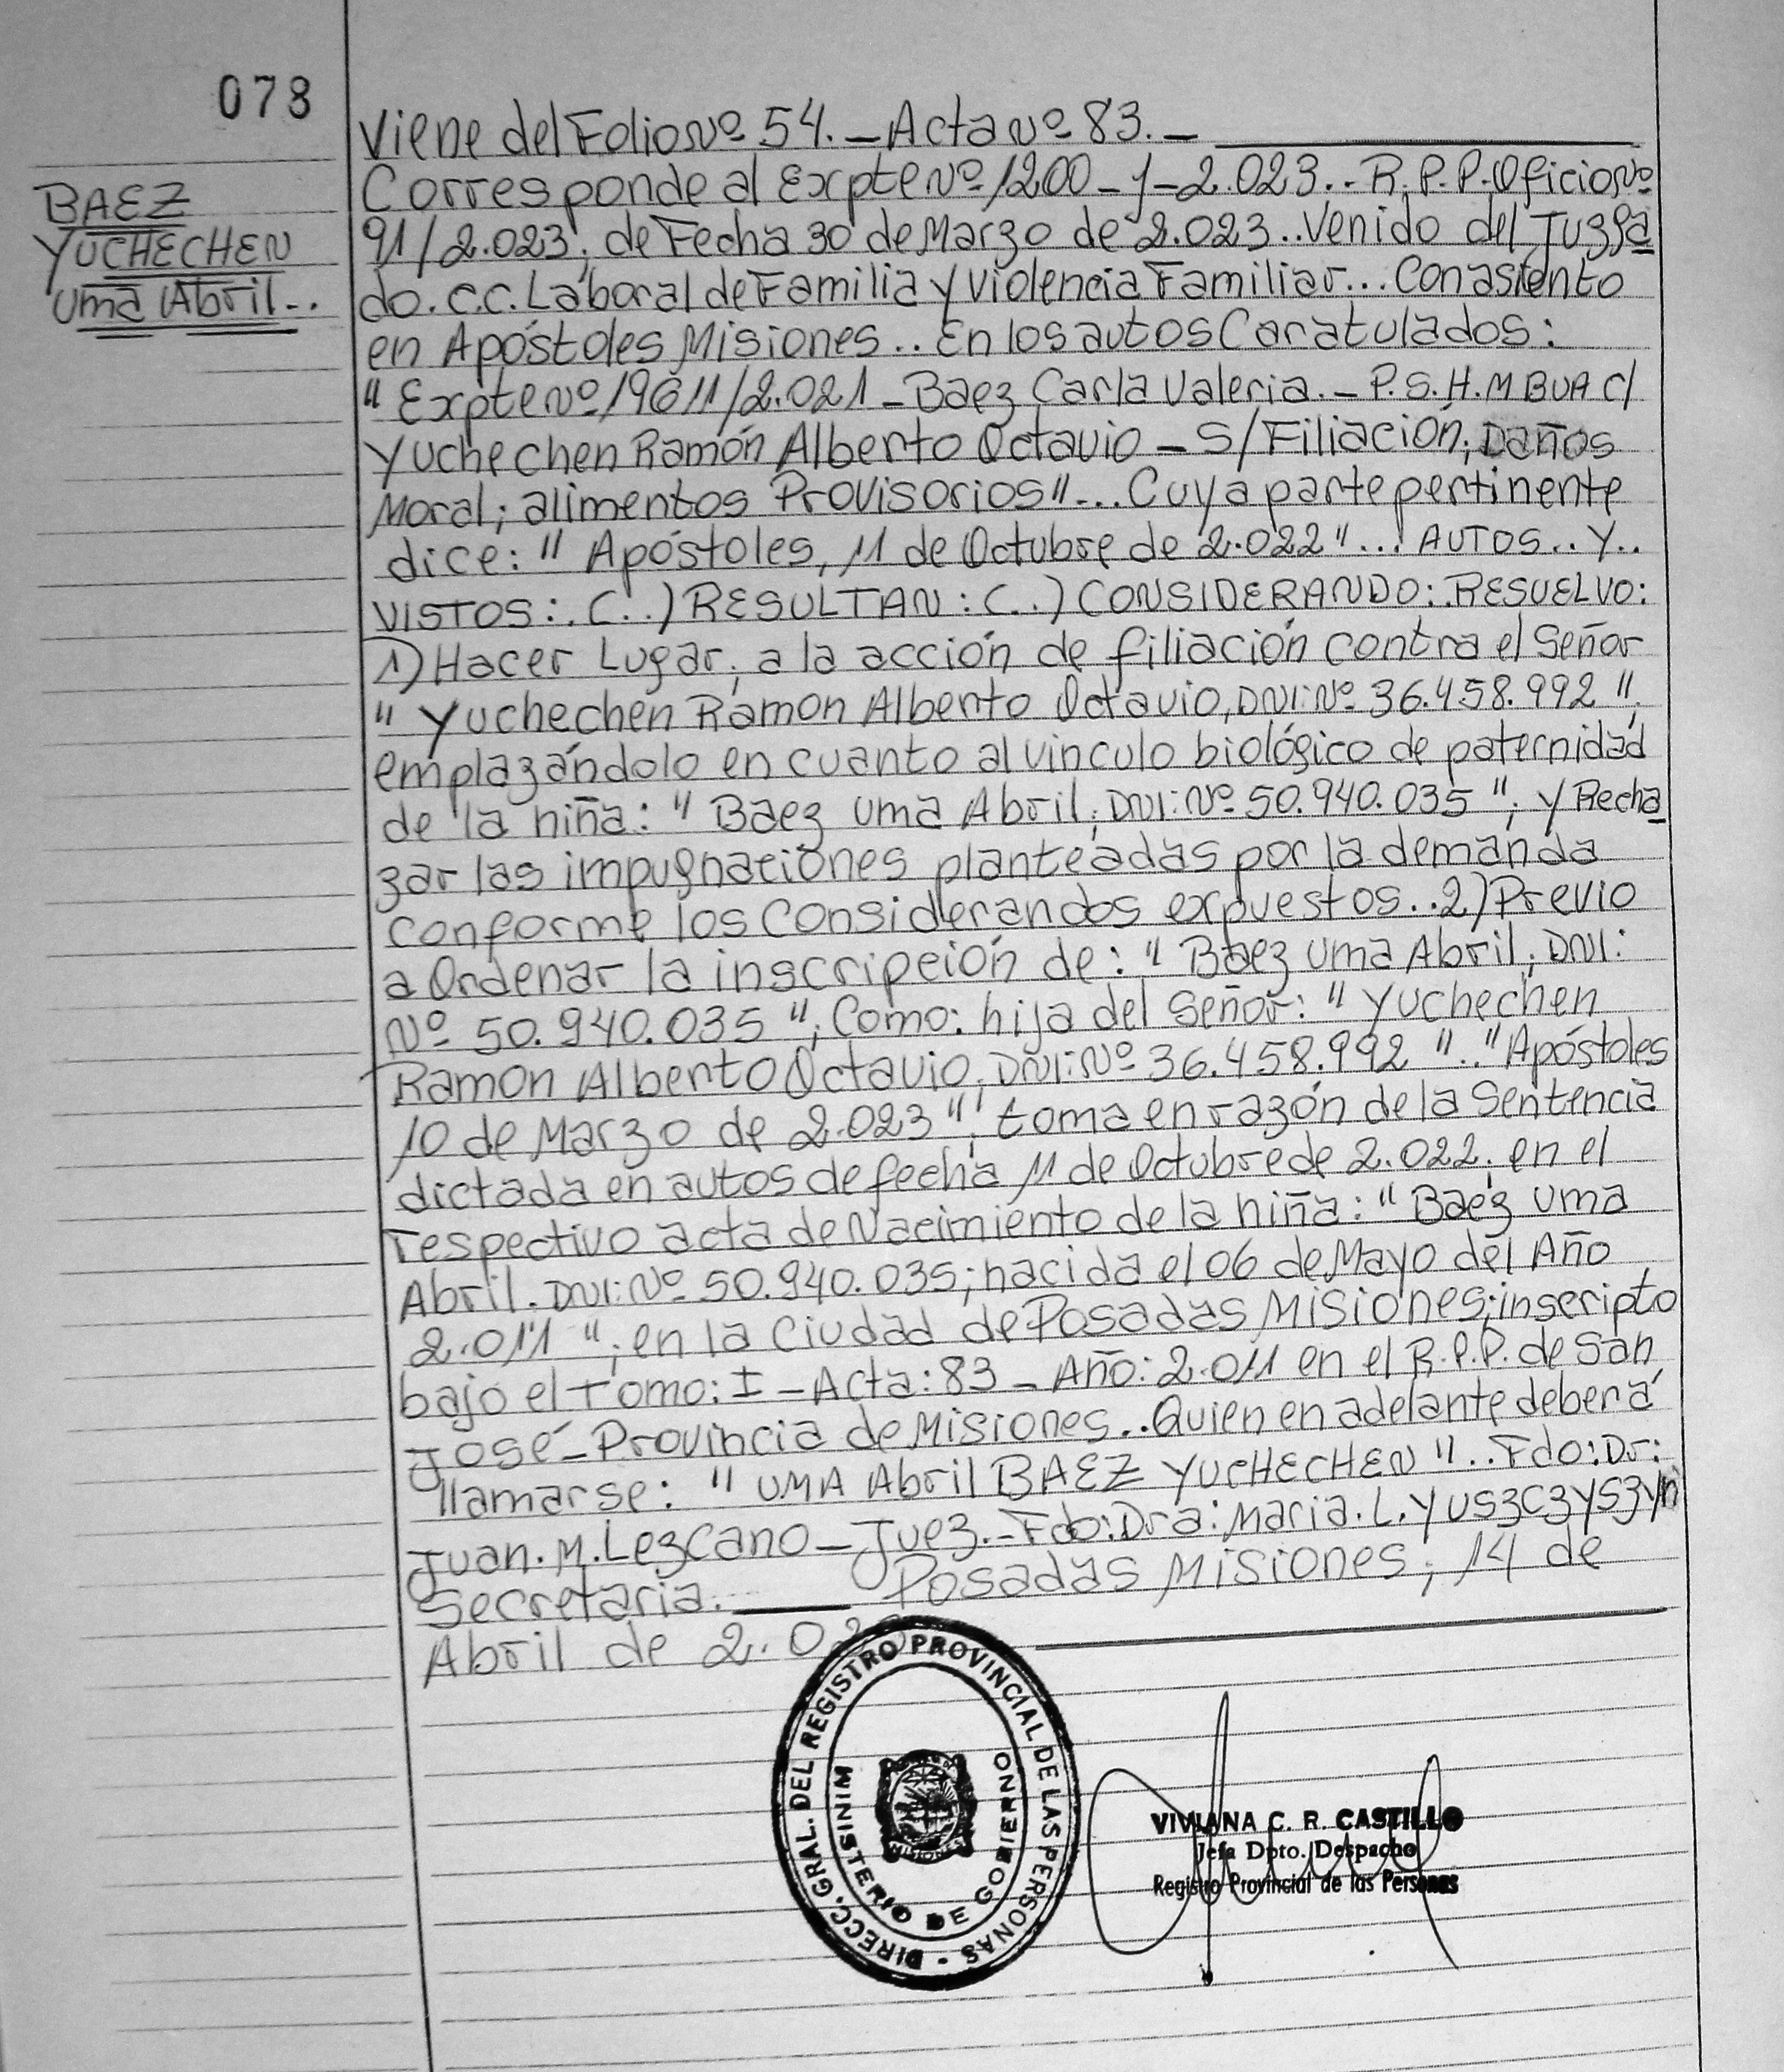 078
BAEZ
YUCHECHEN
Uma Abril..
Viene del Folio Nº 54. - Acta Nº 83. -
Corresponde al Expte Nº 1200 - Y - 2.023.. R.P.P. Oficio Nº
91/2.023; de Fecha 30 de Marzo de 2.023.. Venido del Juzga
do. C.C. Laboral de Familia y Violencia Familiar... Con asiento
en Apóstoles Misiones.. En los autos Caratulados:
"Expte Nº 19611/2.021 - Baez Carla Valeria. - P.S.H.M BUA C/
Yuchechen Ramón Alberto Octavio - S/Filiación; Daños
Moral; alimentos Provisorios"... Cuya parte pertinente
dice: "Apóstoles, 11 de Octubre de 2.022"... AUTOS.. Y..
VISTOS:. (..) RESULTAN: (..) CONSIDERANDO:. RESUELVO:
1) Hacer Lugar; a la acción de filiación contra el Señor
"Yuchechen Ramon Alberto Octavio, DNI: Nº 36.458.992";
emplazándolo en cuanto al vinculo biológico de paternidad
de la niña: "Baez Uma Abril; DNI: Nº 50.940.035"; y Recha
zar las impugnaciones planteadas por la demanda
conforme los Considerandos expuestos.. 2) Previo
a Ordenar la inscripción de: "Baez Uma Abril; DNI:
Nº 50.940.035"; Como: hija del Señor: "Yuchechen
Ramon Alberto Octavio, DNI: Nº 36.458.992".. "Apóstoles
10 de Marzo de 2.023"; toma en razón de la Sentencia
dictada en autos de fecha 11 de Octubre de 2.022; en el
respectivo acta de Nacimiento de la niña: "Baez Uma
Abril. DNI: Nº 50.940.035; nacida el 06 de Mayo del Año
2.011"; en la Ciudad de Posadas Misiones; inscripto
bajo el Tomo: I - Acta: 83 - Año: 2.011 en el R.P.P. de San
José - Provincia de Misiones.. Quien en adelante deberá
llamarse: "UMA Abril BAEZ YUCHECHEN".. Fdo: Dr:
Juan. M. Lezcano - Juez. - Fdo: Dra: Maria. L. Yuszczyszyn
Secretaria. Posadas Misiones; 14 de
Abril de 2.023
DIRECC. GRAL. DEL REGISTRO PROVINCIAL DE LAS PERSONAS -
MINISTERIO DE GOBIERNO
MISIONES
VIVIANA C. R. CASTILLO
Jefa Dpto. Despacho
Registro Provincial de las Personas